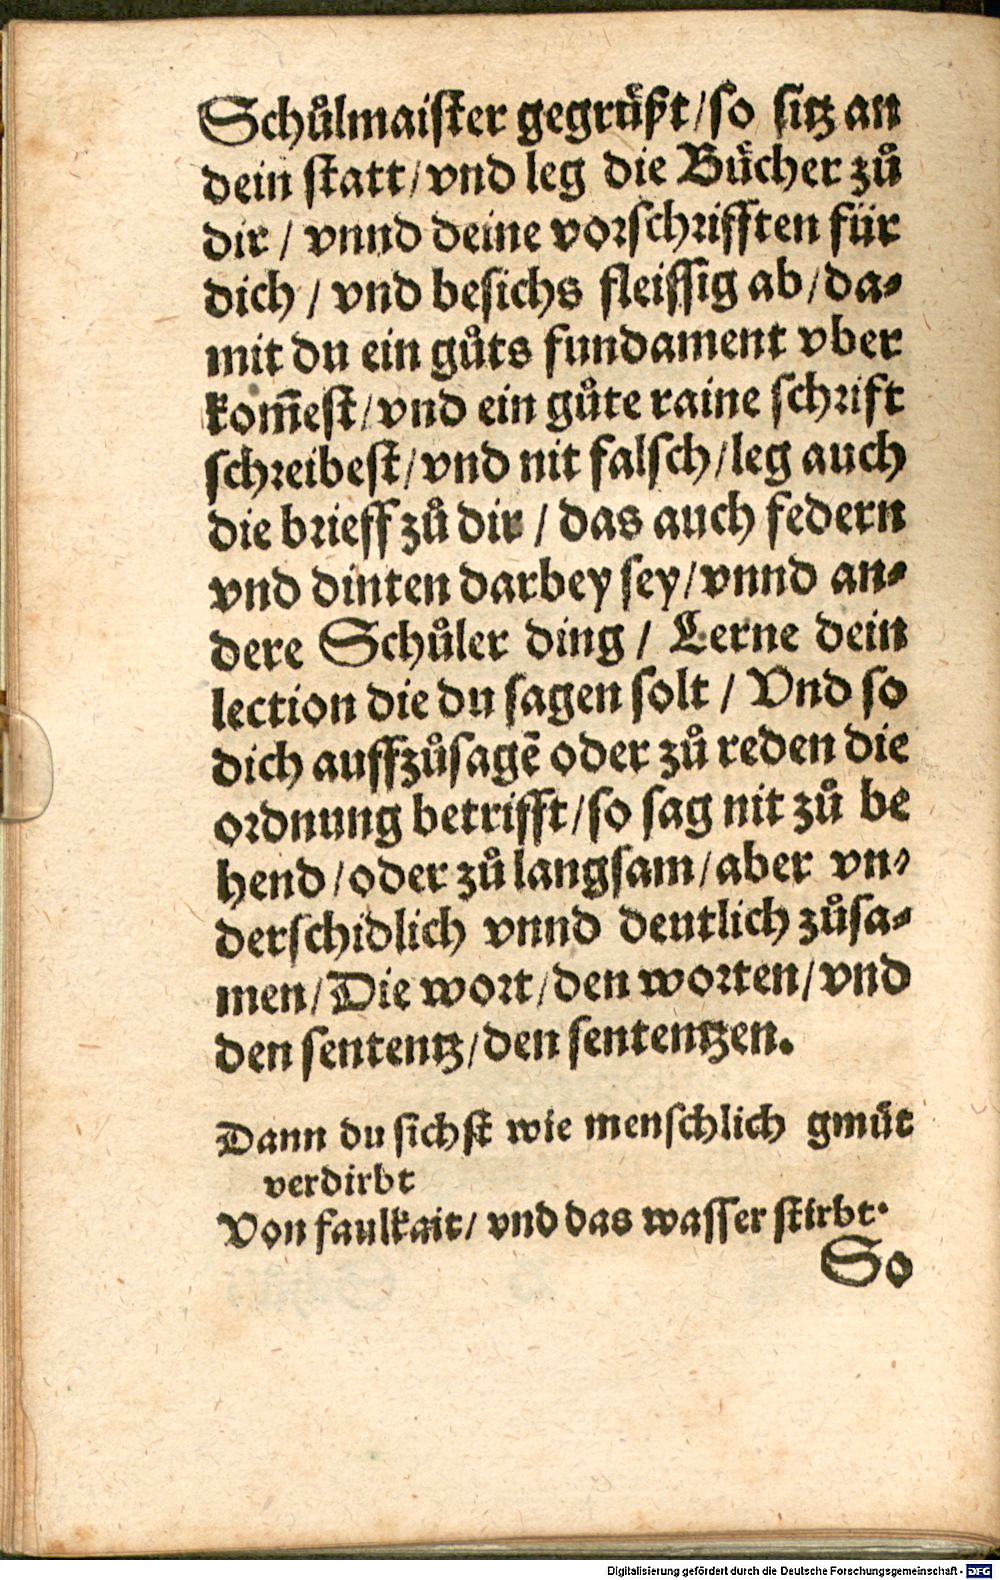 Schůlmaister gegrüßt/so sitz an
dein statt/vnd leg die Bücher zů
dir / vnnd deine vorschrifften für
dich / vnd besichs fleissig ab/da-
mit du ein gůts fundament vber
kom̃est/vnd ein gůte raine schrift
schreibest/vnd nit falsch/leg auch
die brieff zů dir / das auch federn
vnd dinten darbey sey/vnnd an-
dere Schůler ding / Lerne dein
lection die du sagen solt / Vnd so
dich auffzůsagẽ oder zů reden die
ordnung betrifft/so sag nit zů be
hend/oder zů langsam/aber vn-
derschidlich vnnd deutlich zůsa-
men/Die wort/den worten/vnd
den sententz/den sententzen.
Dann du sichst wie menschlich gmüt
verdirbt
Von faulkait/ vnd das wasser stirbt.
So
Digitalisierung gefördert durch die Deutsche Forschungsgemeinschaft - DFG